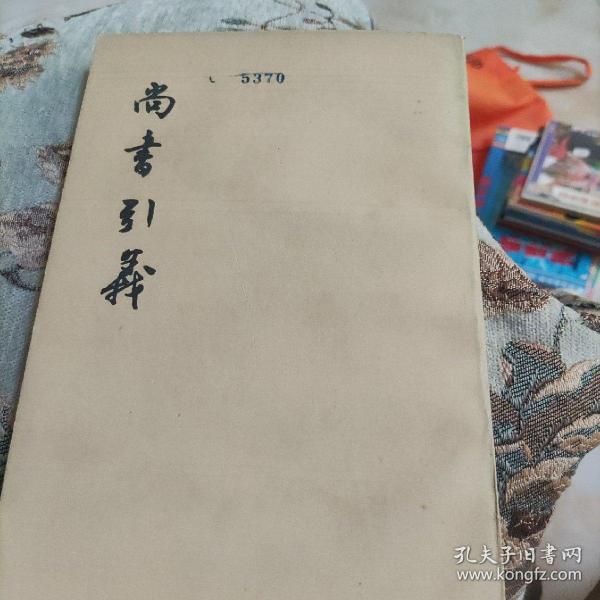 5370
尚書引義
孔夫子旧书网
www.kongfz.com